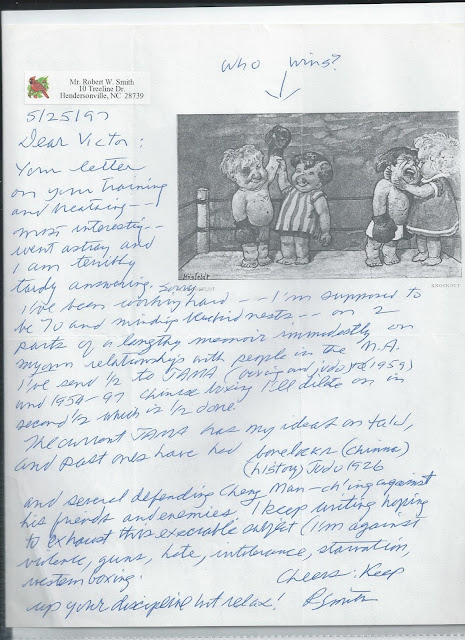 Who wins?
Mr. Robert W. Smith
10 Treeline Dr.
Hendersonville, NC 28739
5/25/97
Dear Victor:
Your letter
on your training
and treating--
most interesting--
went astray and
I am terribly
tardy answering. Sorry
I've been working hard -- I'm supposed to
be 70 and minding bluebird nests -- on 2
parts of a lengthy memoir immodestly on
my own relationships with people in the M.A.
I've send 1/2 to JAMA (boxing and judo 1959)
and 1959-97 Chinese boxing I'll dilate on in
second 1/2 which is 1/2 done.
The current JAMA has my ideas on
and past ones have had
(history) Judo 1926
and several defending Cheng Man-ch'ing against
his friends and enemies. I keep writing hoping
to exhaust this execrable subject (I'm against
violence, guns, hate, intolerance, starvation,
western boxing!
Cheers: Keep
up your discipline but relax! RSmith
KNOCKOUT